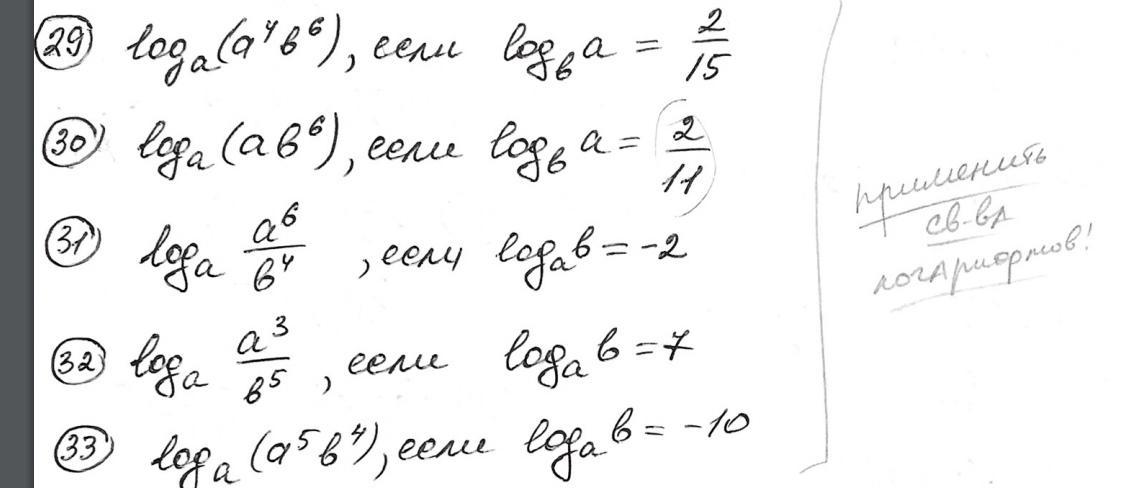 29 log_a(a⁴b⁶), если log_b a = 2/15
30 log_a(ab⁶), если log_b a = 2/11
31 log_a a⁶/b⁴, если log_a b = -2
32 log_a a³/b⁵, если log_a b = 7
33 log_a(a⁵b⁴), если log_a b = -10
применить
св-вА
логАрифмов!